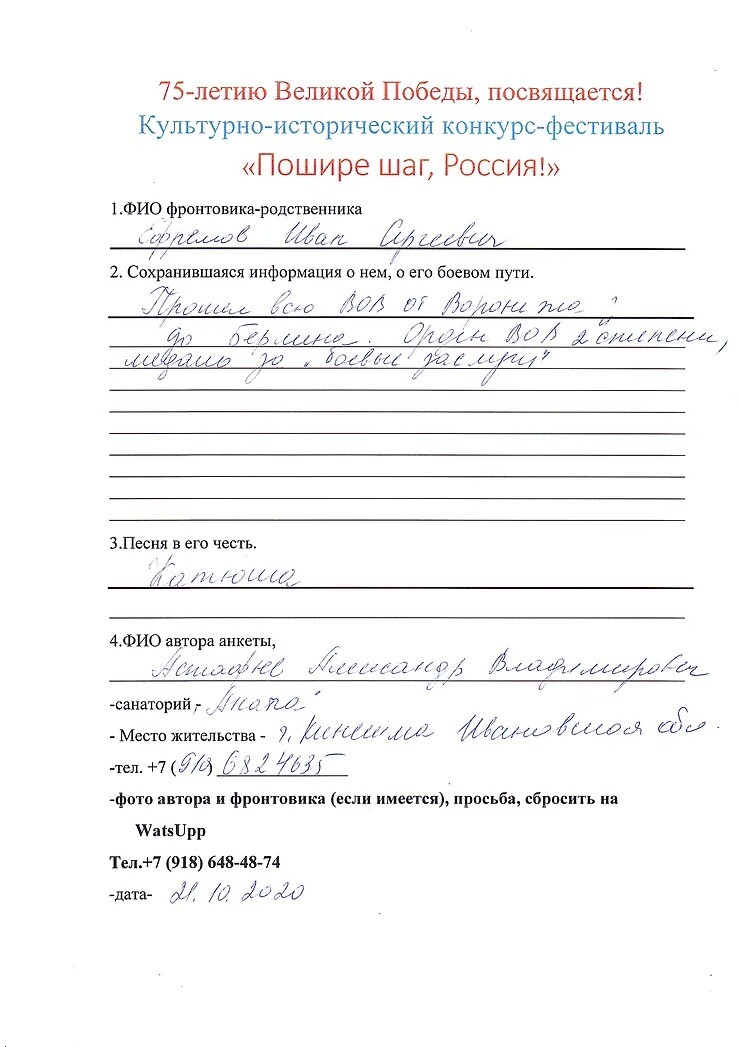 75-летию Великой Победы, посвящается!
Культурно-исторический конкурс-фестиваль
«Пошире шаг, Россия!»
1.ФИО фронтовика-родственника
Ефремов Иван Сергеевич
2. Сохранившаяся информация о нем, о его боевом пути.
Прошел всю ВОВ от Воронежа
до Берлина. Орден ВОВ 2 степени,
медаль за „боевые заслуги"
3.Песня в его честь.
Катюша
4.ФИО автора анкеты,
Астафьев Александр Владимирович
-санаторий - „Анапа"
- Место жительства - г. Кинешма Ивановская обл.
-тел. +7 (910) 6824635
-фото автора и фронтовика (если имеется), просьба, сбросить на
WatsUpp
Тел.+7 (918) 648-48-74
-дата- 21.10.2020